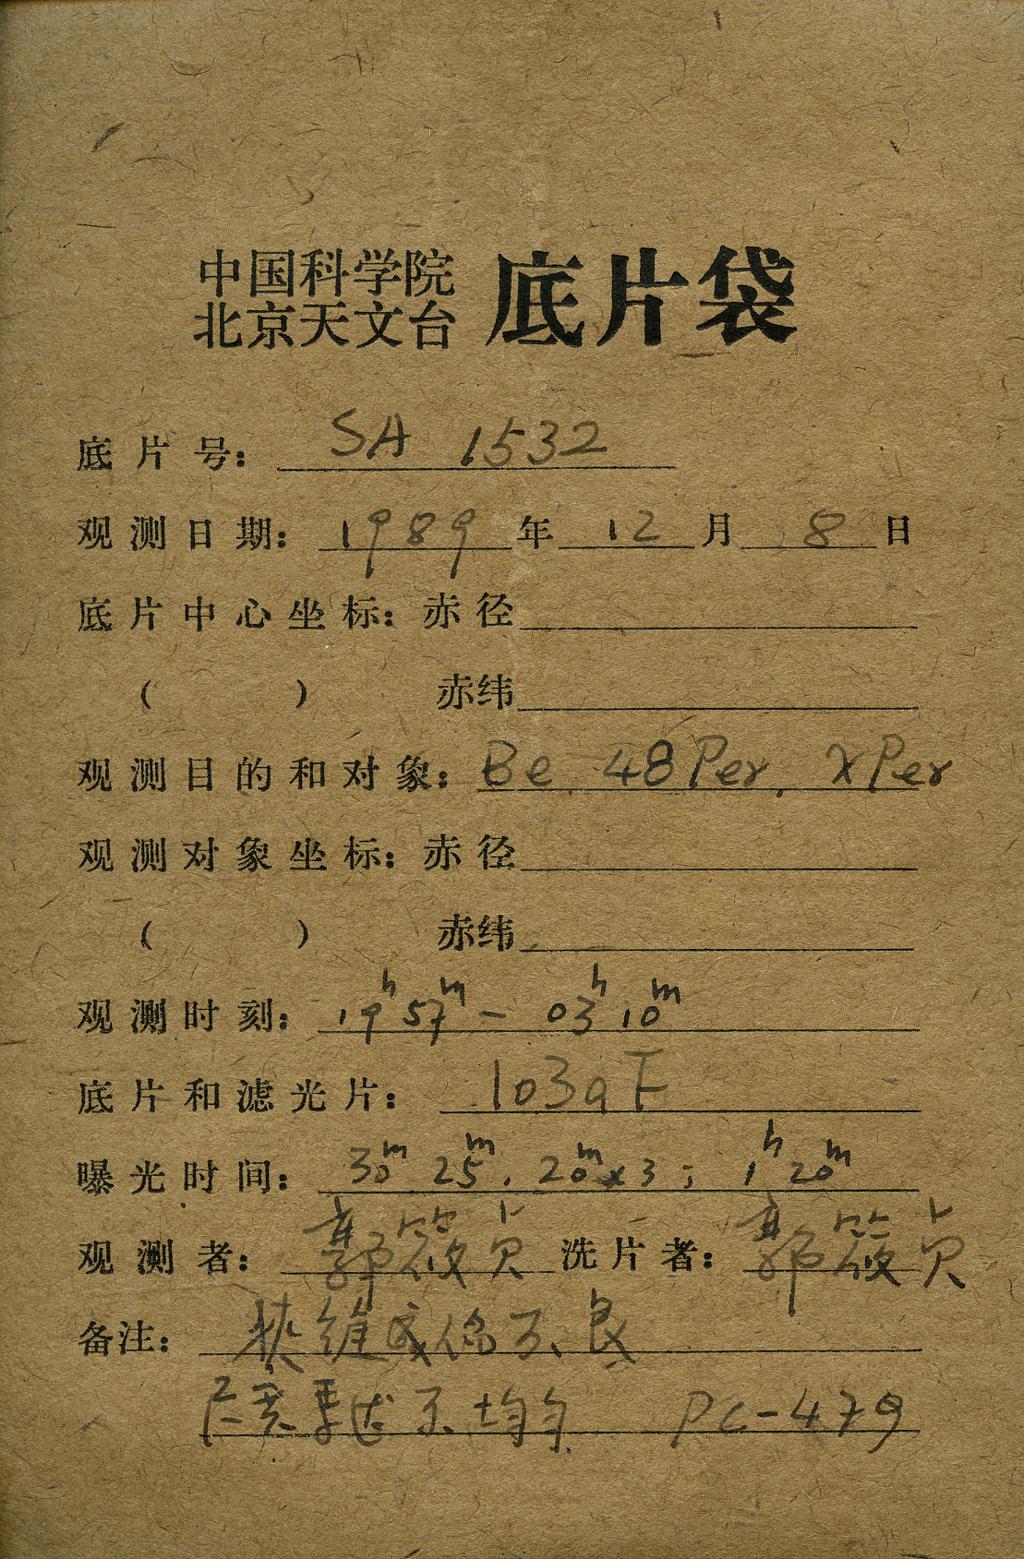 中国科学院
北京天文台 底片袋
底片号: SA 1532
观测日期: 1989年12月8日
底片中心坐标: 赤径
( ) 赤纬
观测目的和对象: Be. 48Per, XPer
观测对象坐标: 赤径
( ) 赤纬
观测时刻: 19h57m - 03h10m
底片和滤光片: 103aF
曝光时间: 30m 25m, 20m x3; 1h20m
观测者: 郭筱贞 洗片者: 郭筱贞
备注: 狭缝成像不良
不均匀 PC-479